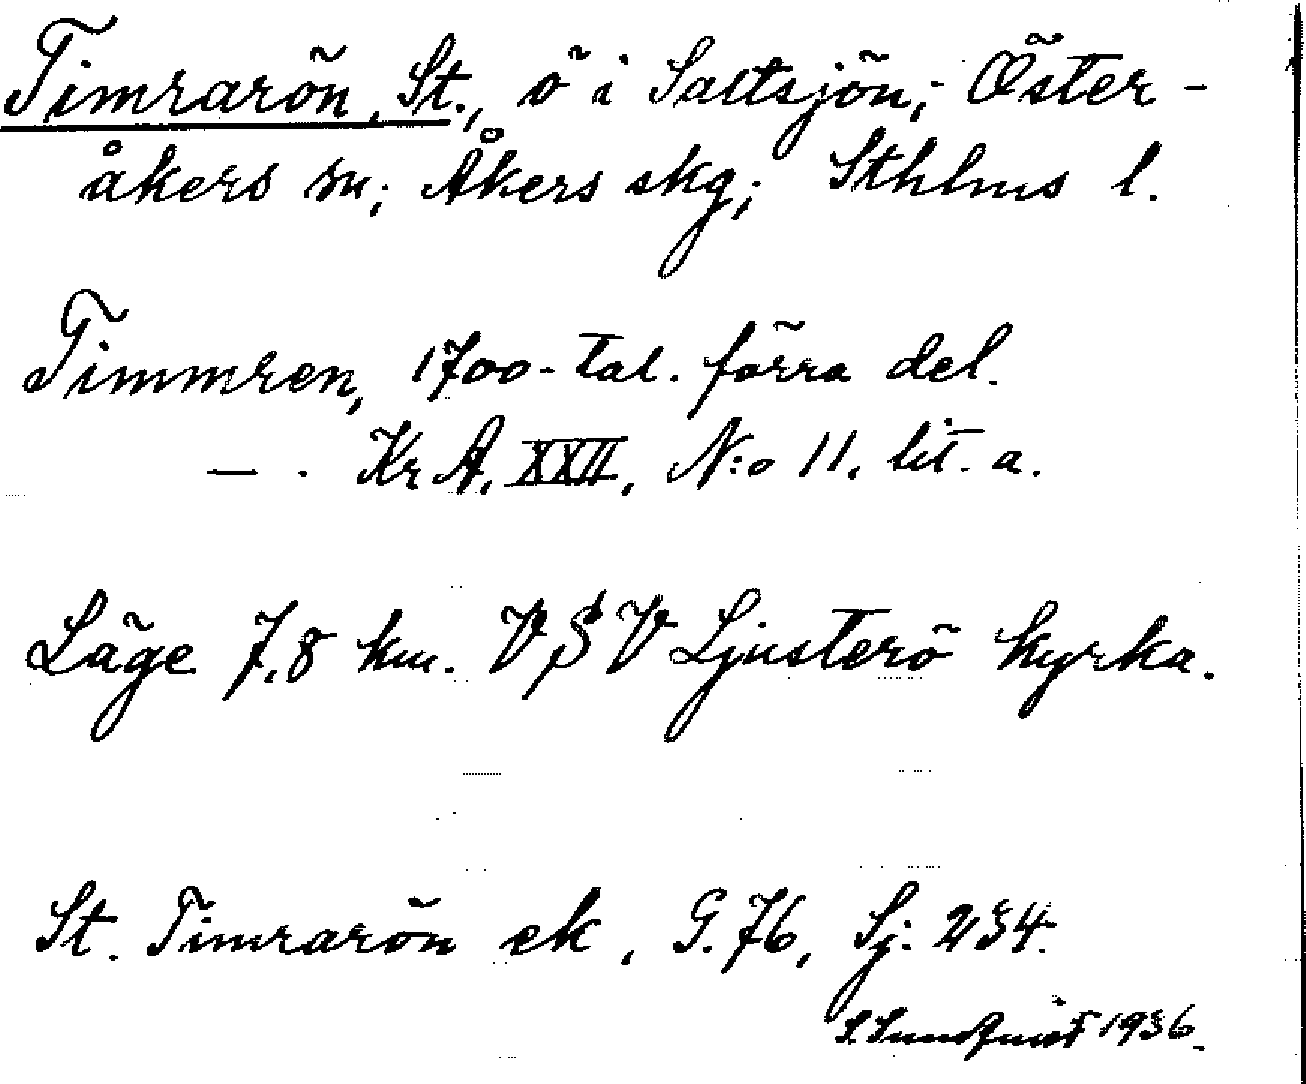 Timrarön, St., ö i Saltsjön; Öster-
åkers sn; Åkers skg; Sthlms l.
Timmren, 1700-tal. förra del.
— . Kr A, XXII, N:o 11, lit. a.
Läge 7,8 km. VSV Ljusterö kyrka.
St. Timrarön ek, G. 76, Sj: 234.
S. Sundquist 1936.